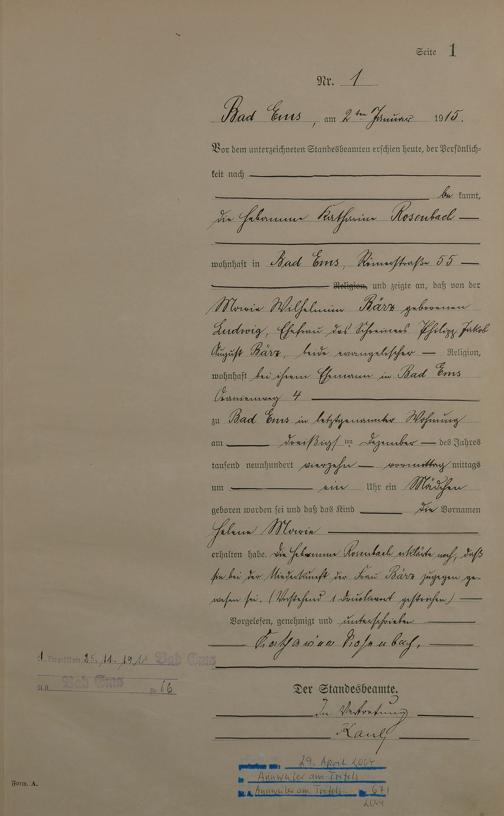 Seite 1
Nr. 1
Bad Ems, am 2ten Januar 1915.
Vor dem unterzeichneten Standesbeamten erschien heute, der Persönlich-
keit nach
be kannt,
die Hebamme Katharina Rosenbach
wohnhaft in Bad Ems, Römerstraße 55
Religion, und zeigte an, daß von der
Marie Wilhelmine Bärz geborenen
Ludwig, Ehefrau des Schreiners Philipp Jakob
August Bärz, beide evangelischer Religion,
wohnhaft bei ihrem Ehemann in Bad Ems
Oranienweg 4
zu Bad Ems in letztgenannter Wohnung
am dreißigsten Dezember des Jahres
tausend neunhundert vierzehn vormittag mittags
um ein Uhr ein Mädchen
geboren worden sei und daß das Kind die Vornamen
Helene Marie
erhalten habe. Die Hebamme Rosenbach erklärte noch, daß
sie bei der Niederkunft der Frau Bärz zugegen ge-
wesen sei. (Vorstehend 1 Druckwort gestrichen)
Vorgelesen, genehmigt und unterschrieben
Katharina Rosenbach,
Der Standesbeamte.
In Vertretung
1. 25.11.19 Bad Ems
Bad Ems 66
gestorben am: 29. April 2004
in Annweiler am Trifels
St. A. Annweiler am Trifels Nr. 67/
2004
Form. A.